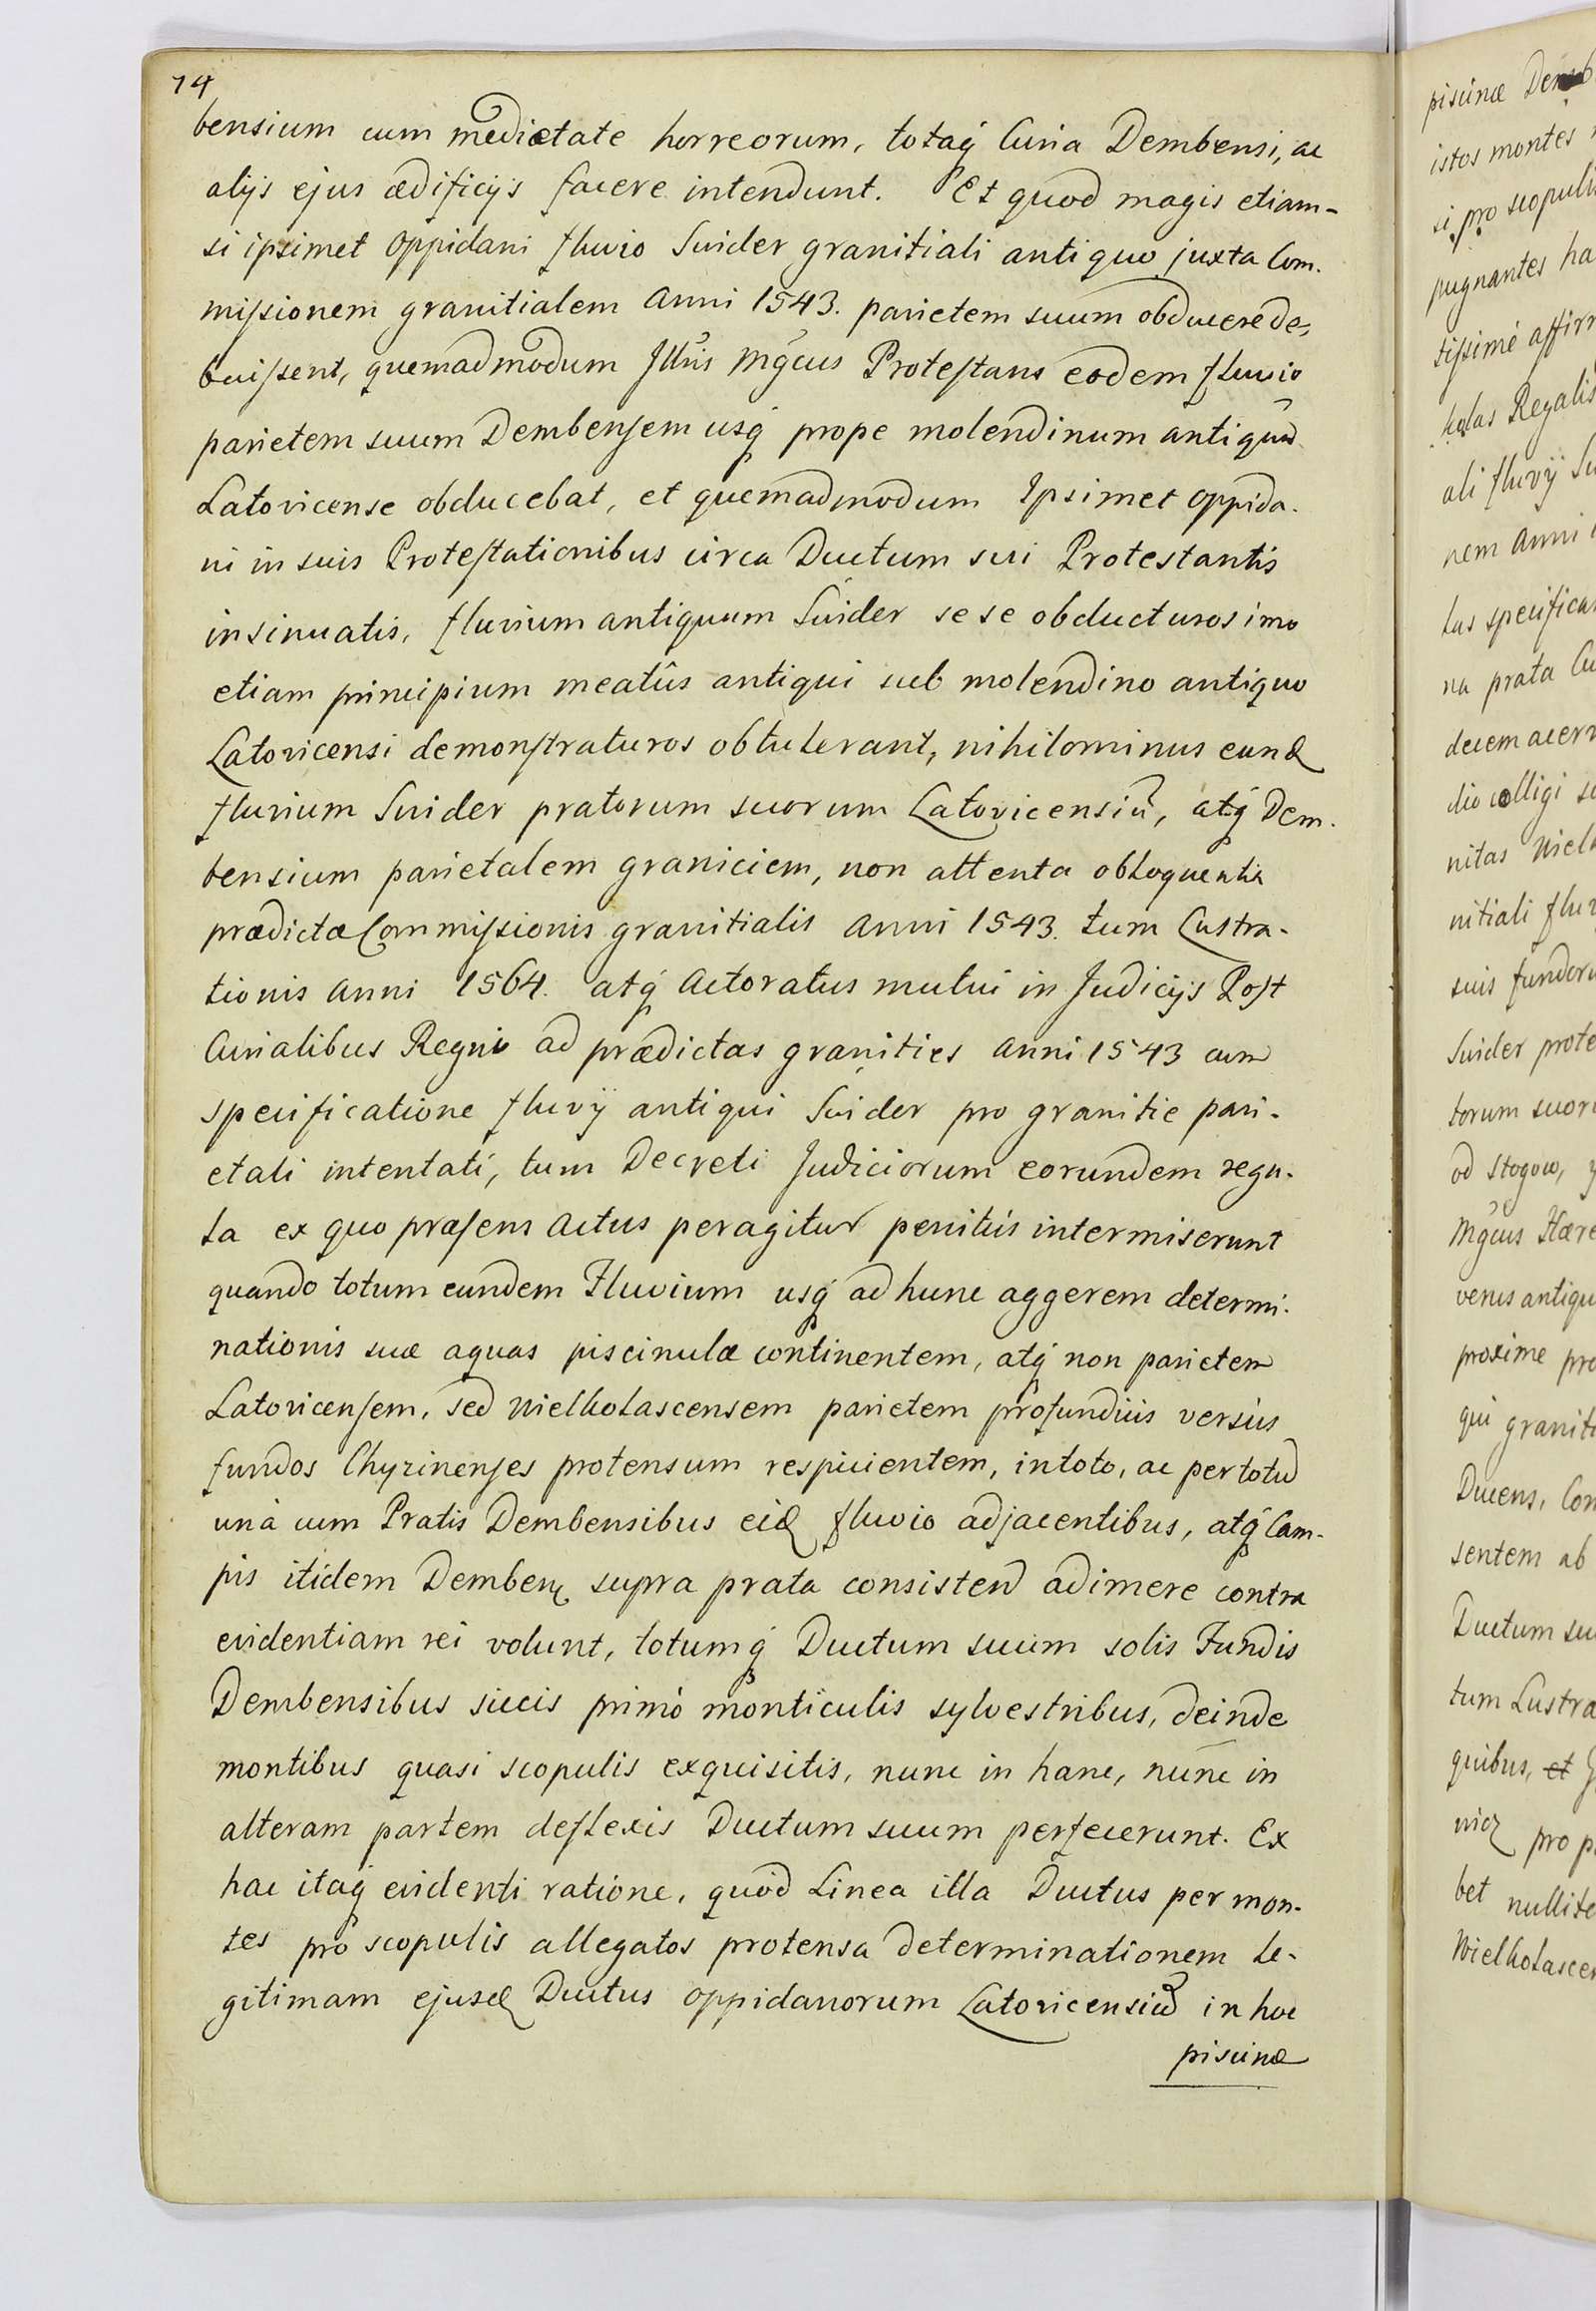 74
bensium cum medietate horreorum, totaq́ Curia Dembensi, ac
alijs ejus ædificijs facere intendunt. Et quod magis etiam-
si ipsimet oppidani fluvio Suider granitiali antiquo juxta Com.
missionem granitialem Anni 1543. parietem suum obducere de,
buissent, quemadmodum Illris Mgcus Protestans eodem fluvio
parietem suum Dembensem usq́ prope molendinum antiquū
Latovicense obducebat, et quemadmodum Ipsimet oppida.
ni in suis Protestationibus circa Ductum sui Protestantis
insinuatis, fluvium antiquum Suider sese obducturos imo
etiam principium meatûs antiqui sub molendino antiquo
Latovicensi demonstraturos obtulerant, nihilominus eund
fluvium Suider pratorum suorum Latovicensiū, atq́ Dem.
bensium parietalem graniciem, non attenta obloquentia
prædictæ Commissionis granitialis Anni 1543. tum Lustra-
tionis Anni 1564. atq́ Actoratus mutui in Judicijs Post
Curialibus Regni ad prædictas granities Anni 1543 cum
specificatione fluvÿ antiqui Suider pro granitie pari-
etali intentati, tum Decreti Judiciorum eorundem regu-
la ex quo præsens Actus peragitur penitùs intermiserunt
quando totum eundem Fluvium usq́ ad hunc aggerem determi-
nationis suæ aquas piscinulæ continentem, atq́ non parietem
Latovicensem, sed Wielkolascensem parietem profundiùs versùs
fundos Chyzinenses protensum respicientem, in toto, ac per totū
unà cum Pratis Dembensibus eid fluvio adjacentibus, atq́ Cam-
pis itidem Demben supra prata consistend adimere contra
evidentiam rei volunt, totumq́ Ductum suum solis Fundis
Dembensibus siccis primò monticulis sylvestribus, deinde
montibus quasi scopulis exquisitis, nunc in hanc, nunc in
alteram partem deflexis Ductum suum perfecerunt. Ex
hac itaq́ evidenti ratione, quòd Linea illa Ductus per mon-
tes pro scopulis allegatos protensa determinationem le-
gitimam ejusd Ductus oppidanorum Latovicensiū in hoc
piscinæ
piscinæ
istos montes
si pro scopulis
pugnantes ha
tissimè affirm
kolas Regalis
ali fluvÿ Su
nem Anni
tas specificat
na prata Cu
decem acerv
dio colligi so
nitas Wielk
nitiali fluv
suis fundoru
Suider prote
torum suoru
od stogow,
Mgcus Hære
verus antiqu
proxime pro
qui granit
Ducens, Con
sentem ab
Ductum su
tum Lustra
quibus, et
nicz pro p
bet nullite
Wielkolascen